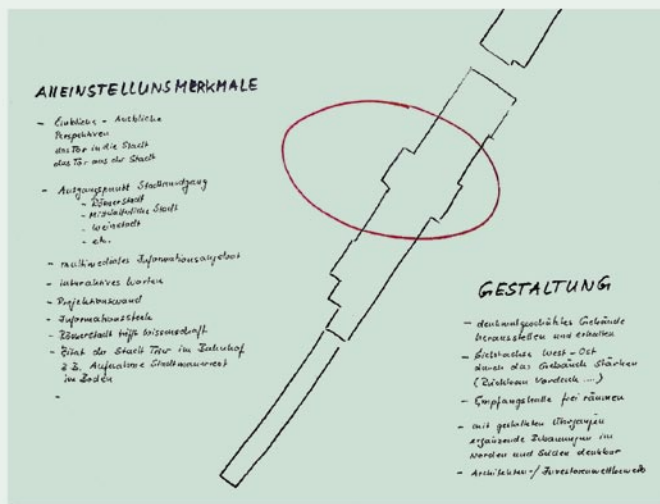 ALLEINSTELLUNSMERKMALE
- Einblicke - Ausblicke
Perspektiven
das Tor in die Stadt
das Tor aus der Stadt
- Ausgangspunkt Stadtrundgang
- Römerstadt
- Mittelalterliche Stadt
- Weinstadt
- etc.
- multimediales Informationsangebot
- interaktives Warten
- Projektionswand
- Informationsstele
- Römerstadt trifft Wissenschaft
- Zitat der Stadt Trier im Bahnhof
z.B. Aufnahme Stadtmauerrest
im Boden
-
GESTALTUNG
- denkmalgeschütztes Gebäude
herausstellen und erhalten
- Sichtachse West-Ost
durch das Gebäude stärken
(Rückbau Vordach ....)
- Empfangshalle frei räumen
- mit gestalteten Übergängen
ergänzende Bebauungen im
Norden und Süden denkbar
- Architekten-/Investorenwettbewerb